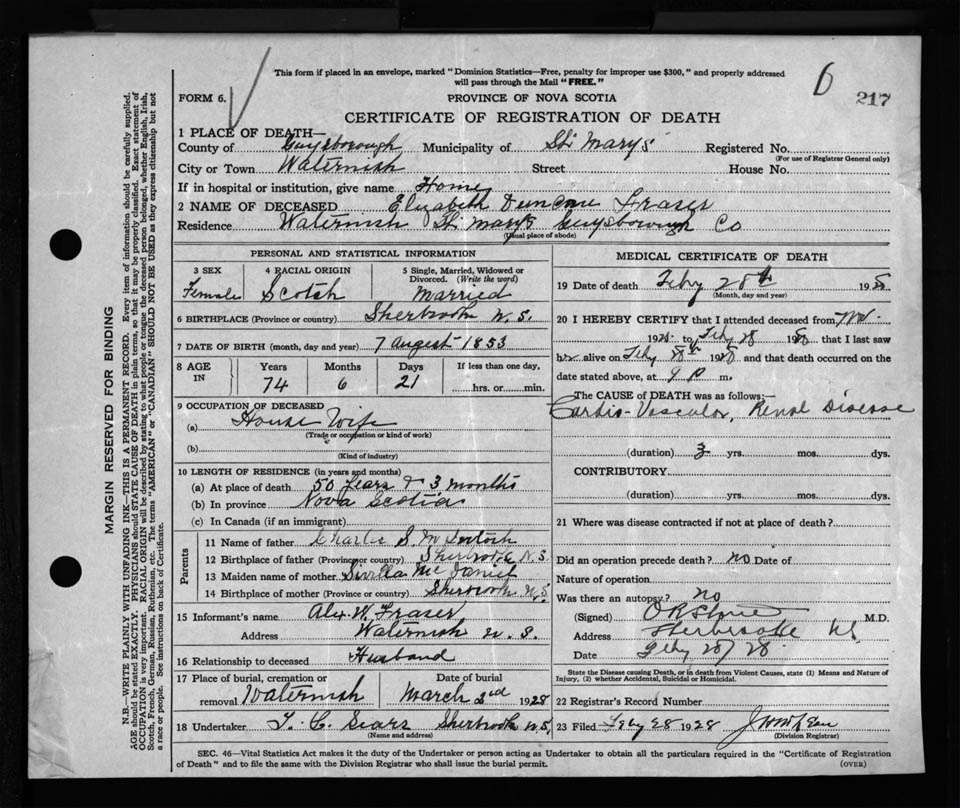 This form if placed in an envelope, marked "Dominion Statistics—Free, penalty for improper use $300," and properly addressed
will pass through the Mail "FREE."
6
217
FORM 6.
PROVINCE OF NOVA SCOTIA
CERTIFICATE OF REGISTRATION OF DEATH
1 PLACE OF DEATH—
County of Guysborough Municipality of St. Marys Registered No.
(For use of Registrar General only)
City or Town Waternish Street House No.
If in hospital or institution, give name Home
2 NAME OF DECEASED Elizabeth Fraser
Residence Waternish St Mary's Guysborough Co
(Usual place of abode)
PERSONAL AND STATISTICAL INFORMATION
3 SEX 4 RACIAL ORIGIN 5 Single, Married, Widowed or
Divorced. (Write the word)
Female Scotch Married
6 BIRTHPLACE (Province or country) Sherbrooke N.S.
7 DATE OF BIRTH (month, day and year) 7 August 1853
8 AGE IN Years Months Days If less than one day,
74 6 21 hrs. or min.
9 OCCUPATION OF DECEASED
(a) House Wife
(Trade or occupation or kind of work)
(b)
(Kind of industry)
10 LENGTH OF RESIDENCE (in years and months)
(a) At place of death 50 Years & 3 months
(b) In province Nova Scotia
(c) In Canada (if an immigrant)
Parents
11 Name of father Charles S. McIntosh
12 Birthplace of father (Province or country) Sherbrooke N.S
13 Maiden name of mother
14 Birthplace of mother (Province or country) Sherbrooke N.S
15 Informant's name Alex W. Fraser
Address Waternish N.S.
16 Relationship to deceased Husband
17 Place of burial, cremation or Date of burial
removal Waternish March 2nd 1928
18 Undertaker T. C. Sears Sherbrooke N.S,
(Name and address)
MEDICAL CERTIFICATE OF DEATH
19 Date of death Feby 28th 1928
(Month, day and year)
20 I HEREBY CERTIFY that I attended deceased from
192 to Feby 28 1928 that I last saw
her alive on Feby 1928 and that death occurred on the
date stated above, at 9 p m.
The CAUSE of DEATH was as follows:
Cardio-Vascular, Renal Disease
(duration) 3 yrs. mos. dys.
CONTRIBUTORY.
(duration) yrs. mos. dys.
21 Where was disease contracted if not at place of death?
Did an operation precede death? no Date of
Nature of operation
Was there an autopsy? no
(Signed) M.D.
Address Sherbrooke NS
Date Feby 28/28
State the Disease causing Death, or in death from Violent Causes, state (1) Means and Nature of
Injury, (2) whether Accidental, Suicidal or Homicidal.
22 Registrar's Record Number
23 Filed Feby 28 1928
(Division Registrar)
SEC. 46—Vital Statistics Act makes it the duty of the Undertaker or person acting as Undertaker to obtain all the particulars required in the "Certificate of Registration
of Death" and to file the same with the Division Registrar who shall issue the burial permit. (OVER)
MARGIN RESERVED FOR BINDING
N.B.—WRITE PLAINLY WITH UNFADING INK—THIS IS A PERMANENT RECORD. Every item of information should be carefully supplied.
AGE should be stated EXACTLY. PHYSICIANS should STATE CAUSE OF DEATH in plain terms, so that it may be properly classified. Exact statement of
OCCUPATION is very important. RACIAL ORIGIN will be described by stating to what people or tongue the deceased person belonged, whether English, Irish,
Scotch, French, German, Russian, Ruthenian, etc. The terms "AMERICAN" or "CANADIAN" SHOULD NOT BE USED as they express citizenship but not
a race or people. See instructions on back of Certificate.